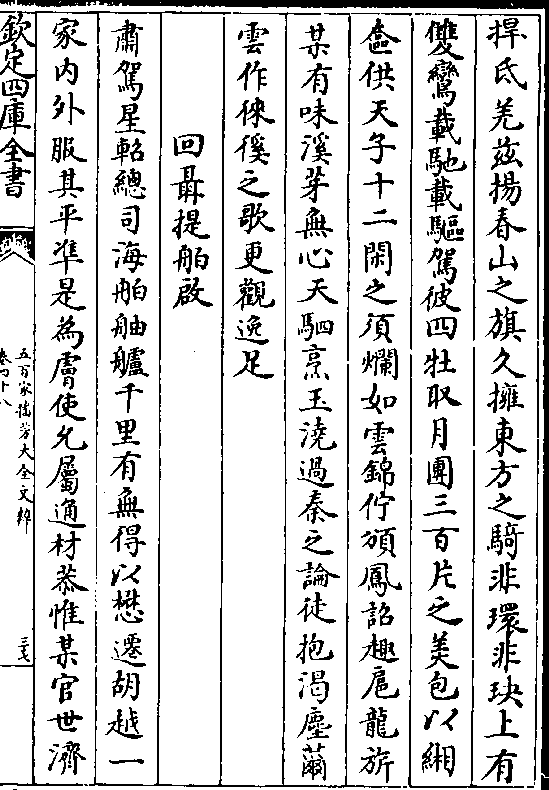 捍氐羌兹揚春山之旗久擁東方之騎非環非玦上有
雙鸞載馳載驅駕彼四牡取月團三百片之美包以緗
奩供天子十二閑之須爛如雲錦佇頒鳳詔趣扈龍旂
某有味溪芽無心天駟烹玉澆過秦之論徒抱渴塵繭
雲作徠徯之歌更觀逸足
回聶提舶啟
肅駕星軺總司海舶舳艫千里有無得以懋遷胡越一
家内外服其平準是為膚使允屬通材恭惟某官世濟
欽定四庫全書
五百家播芳大全文粹
卷四十八
三七